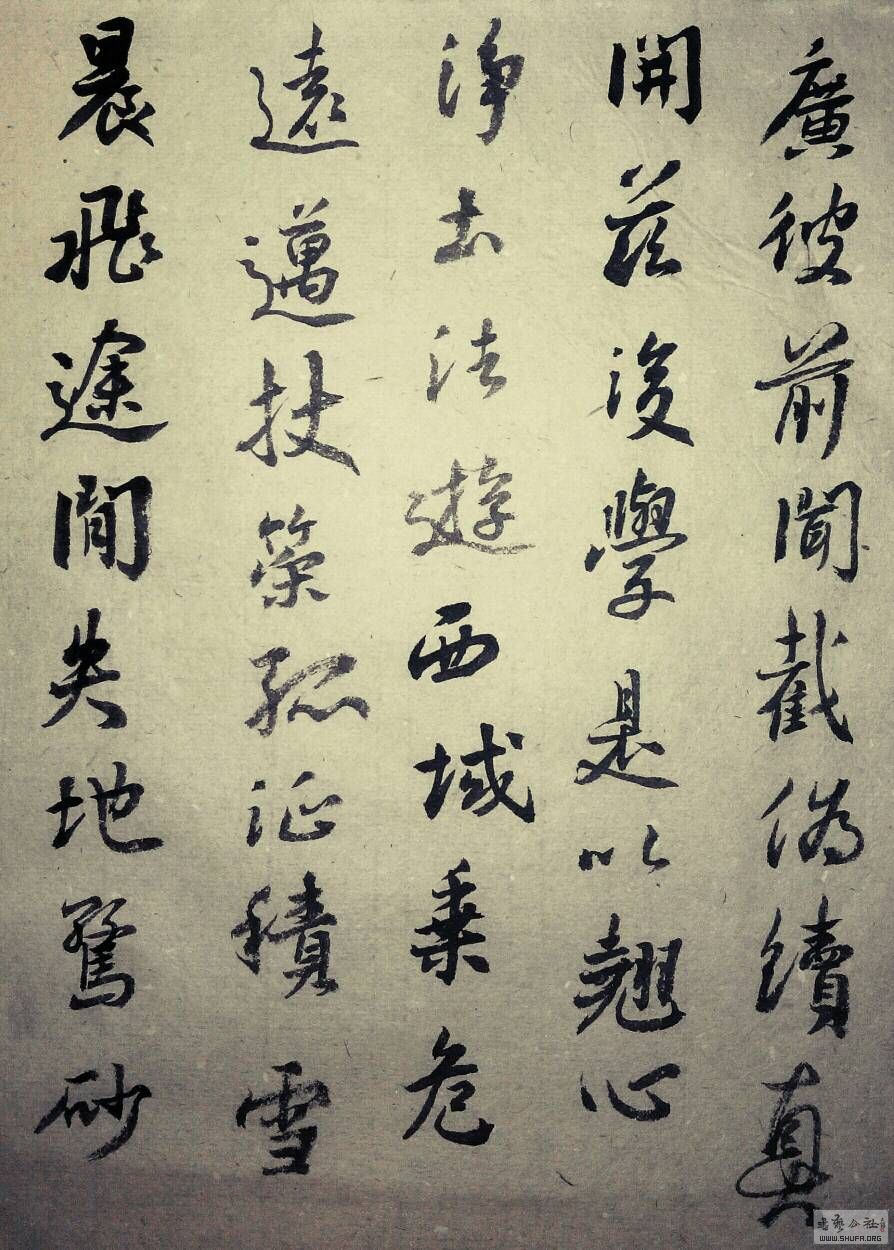 廣彼前聞截偽續真
開茲後學是以翹心
淨土法遊西域乘危
遠邁杖策孤征積雪
晨飛途閒失地驚砂
書藝公社
WWW.SHUFA.ORG